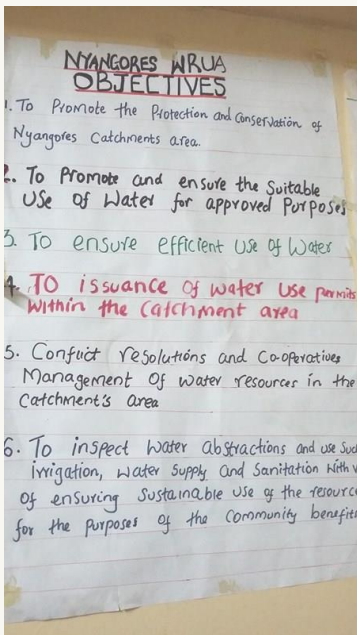 NYANGORES WRUA
OBJECTIVES
1. To Promote the Protection and Conservation of
Nyangores Catchments area.
2. To Promote and ensure the Suitable
Use of Water for approved Purposes
3. To ensure efficient Use of Water
4. To issuance of water use permits
within the Catchment area
5. Confuct resolutions and Co-operatives
Management Of water resources in the
Catchment's area
6. To inspect Water abstractions and use Such
irrigation, water Supply and Sanitation with
of ensuring Sustainable Use of the resource
for the Purposes of the Community benefits